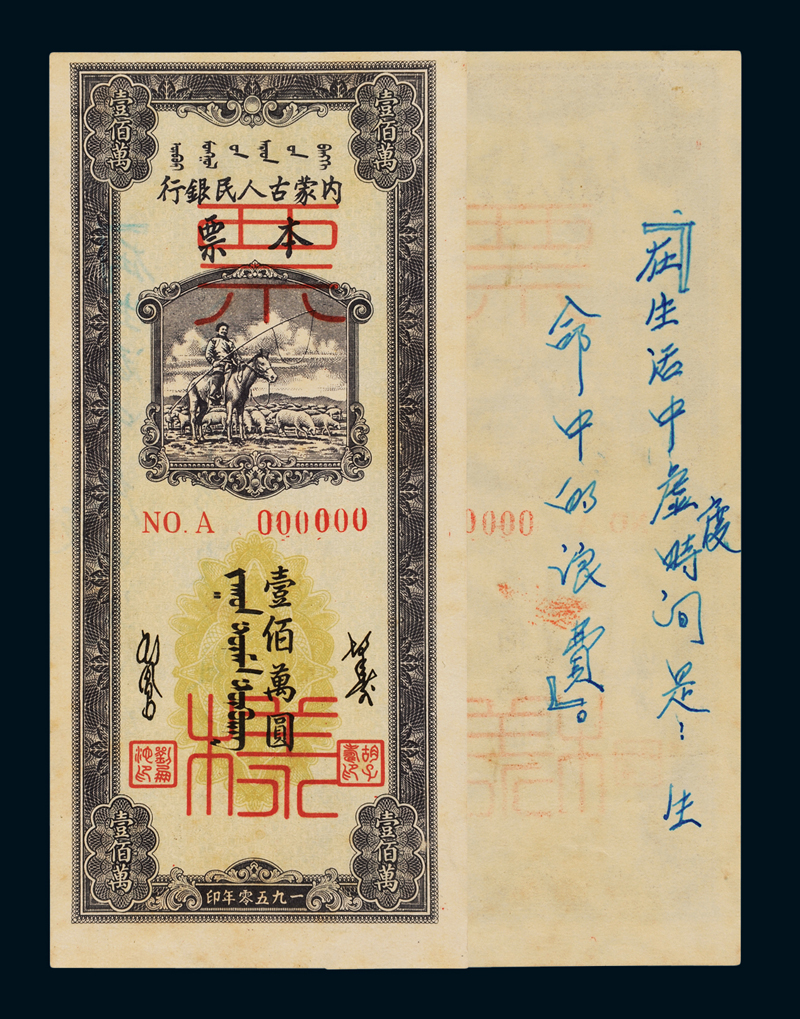 壹佰萬
壹佰萬
內蒙古人民銀行
本票
票樣
NO. A 000000
壹佰萬圓
胡子壽印
壹佰萬
壹佰萬
一九五零年印
「在生活中虛度時間是：生
命中的浪費」。